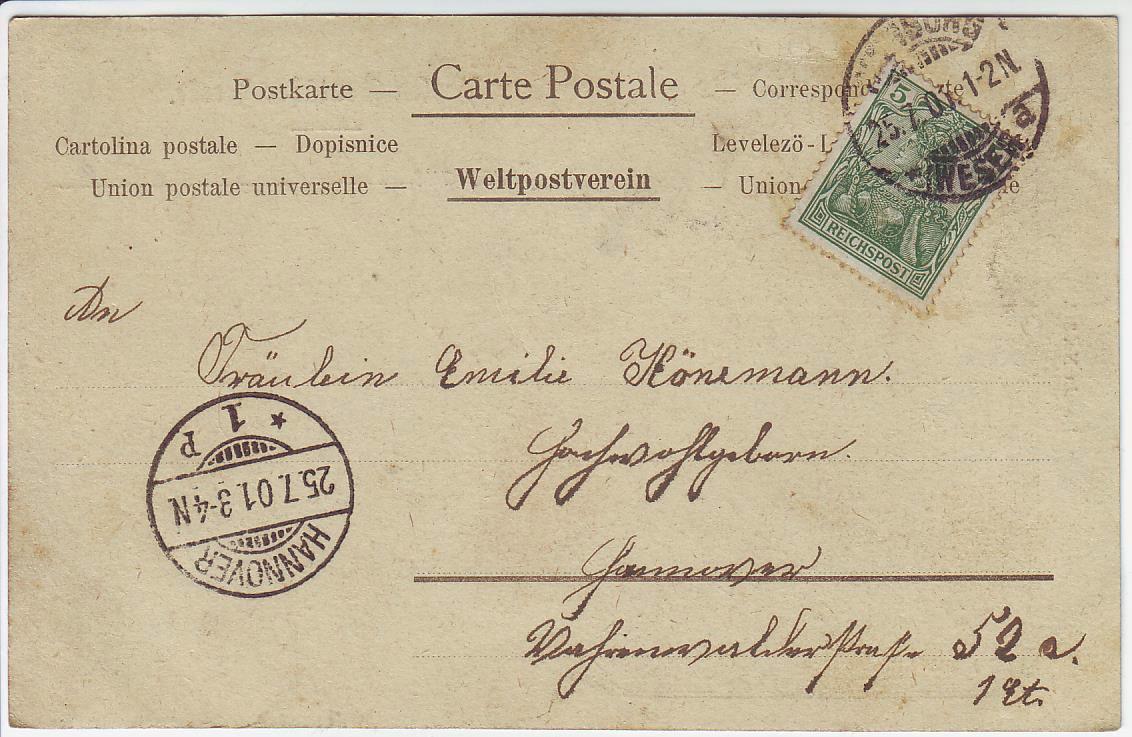 Postkarte — Carte Postale — Correspond
Cartolina postale — Dopisnice Levelező-L
Union postale universelle — Weltpostverein — Union
5
25.7.01 1-2N
WESER
a
REICHSPOST
An
Fräulein Emilie Könemann.
Hochwohlgeborn.
Hannover
Vahrenwalderstraße 52 a.
1 Et.
* 1 P
25.7.01.3-4N
HANNOVER